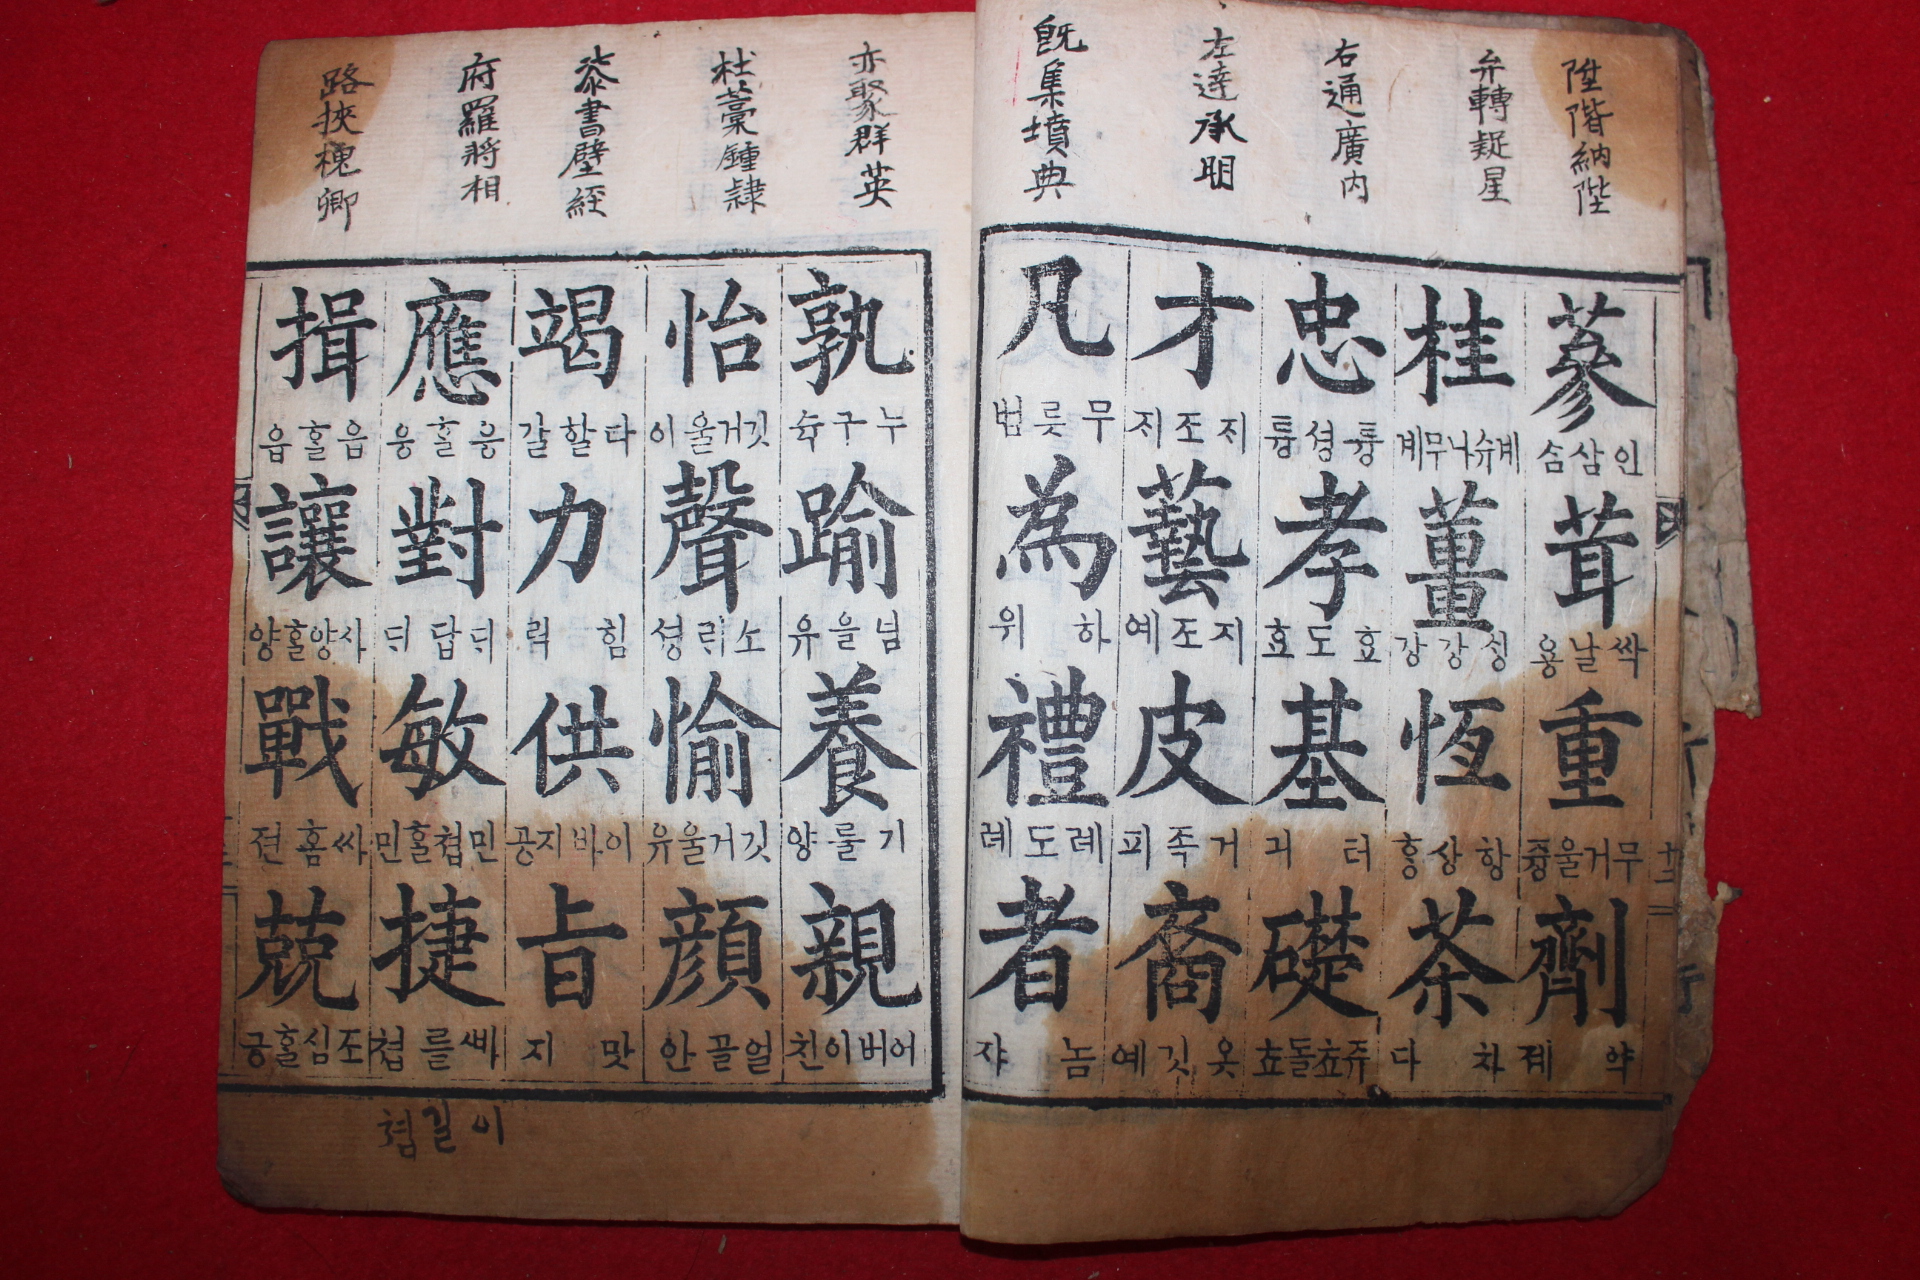 陞階納陛
弁轉疑星
右通廣內
左達承明
旣集墳典
亦聚群英
杜藁鍾隷
柒書壁經
府羅將相
路挾槐卿
蔘 인삼솜 茸 싹날용 重 무거울즁 劑 약졔
桂 계슈나무계 薑 싱강강 恆 항샹홍 茶 차다
忠 튱셩튱 孝 효도효 基 터긔 礎 쥬쵸돌쵸
才 지조지 藝 지조예 皮 거족피 裔 옷깃예
凡 무릇범 為 하위 禮 례도례 者 놈쟈
孰 누구슉 踰 넘을유 養 기룰양 親 어버이친
怡 깃거울이 聲 소리셩 愉 깃거울유 顔 얼골안
竭 다할갈 力 힘력 供 이바지공 旨 맛지
應 응홀응 對 디답디 敏 민쳡홀민 捷 ᄲᅡ를쳡
揖 읍홀읍 讓 사양홀양 戰 싸홈젼 兢 조심홀긍
十二
이길쳠